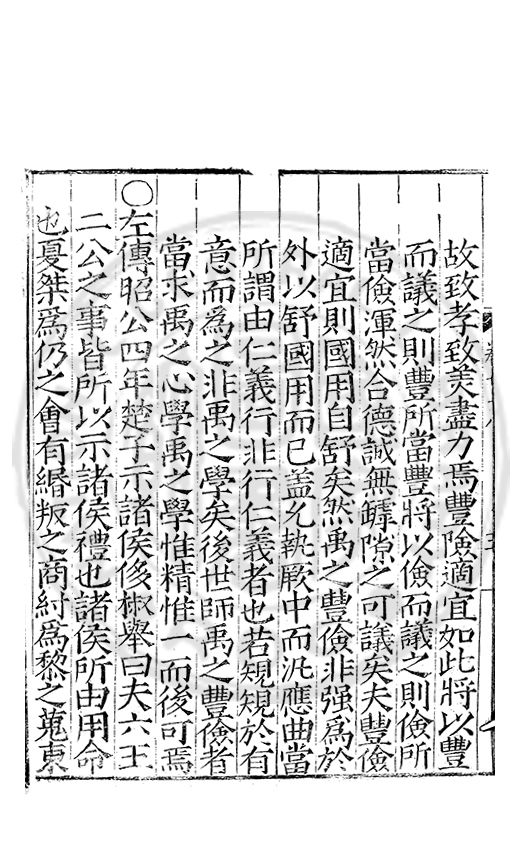 故致孝致美盡力焉豐險適宜如此將以豐
而議之則豐所當豐將以儉而議之則儉所
當儉渾然合德誠無罅隙之可議矣夫豐儉
適宜則國用自舒矣然禹之豐儉非强爲於
外以舒國用而已盖允執厥中而汎應曲當
所謂由仁義行非行仁義者也若規規於有
意而爲之非禹之學矣後世師禹之豐儉者
當求禹之心學禹之學惟精惟一而後可焉
〇左傳昭公四年楚子示諸侯侈椒舉曰夫六王
二公之事皆所以示諸侯禮也諸侯所由用命
也夏桀爲仍之會有緡叛之商紂爲黎之蒐東